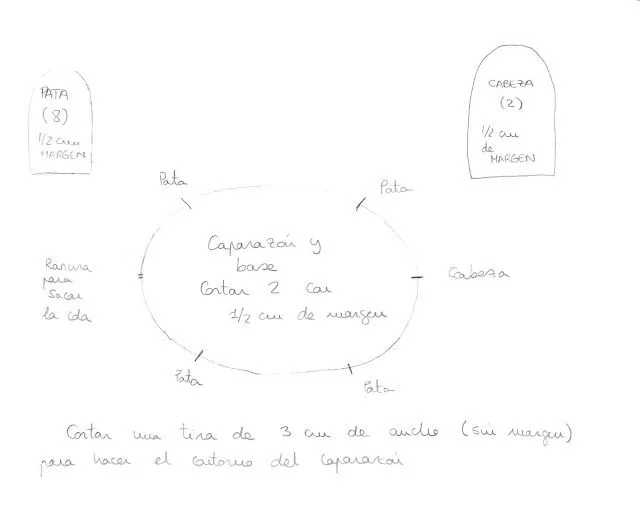 PATA
(8)
1/2 cm
MARGEN
CABEZA
(2)
1/2 cm
de
MARGEN
Pata
Pata
Caparazón y
base
Cortar 2 con
1/2 cm de margen
Ranura
para
sacar
la cola
Cabeza
Pata
Pata
Cortar una tira de 3 cm de ancho (sin margen)
para hacer el contorno del caparazón